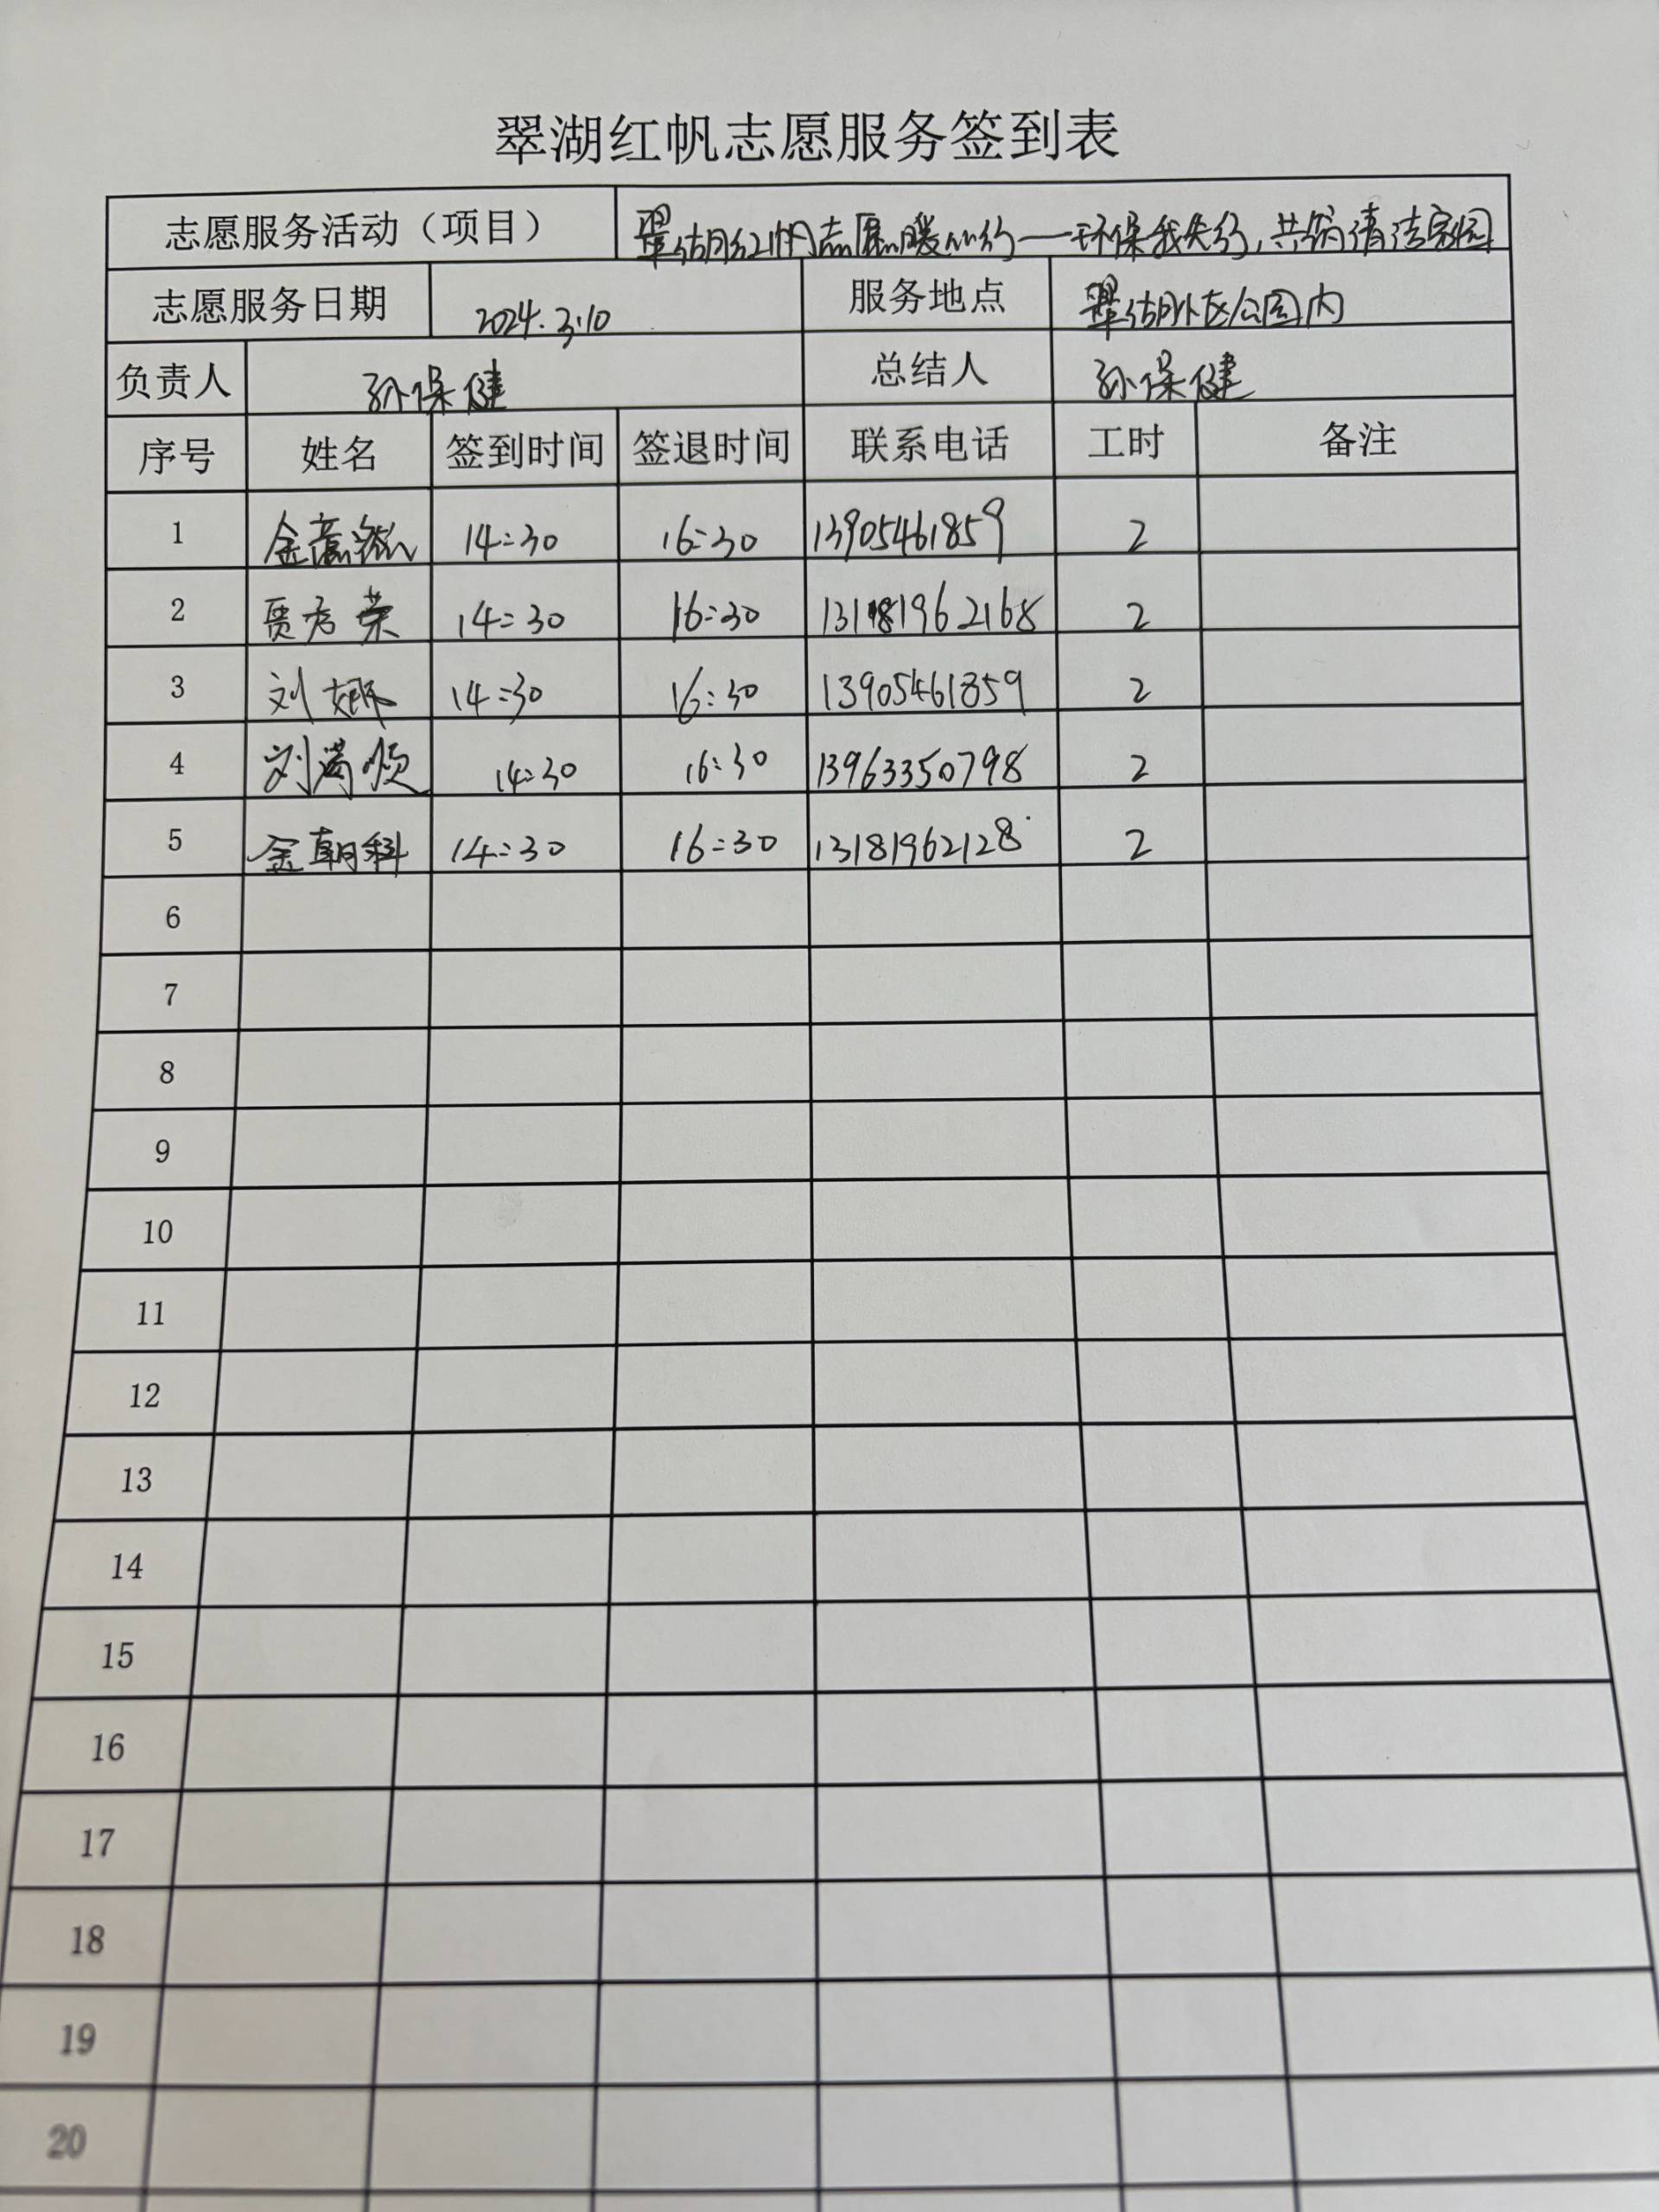 翠湖红帆志愿服务签到表
志愿服务活动（项目） 翠湖红帆志愿暖心行—环保我先行，共筑清洁家园
志愿服务日期 2024.3.10 服务地点 翠湖小区公园内
负责人 孙保健 总结人 孙保健
序号 姓名 签到时间 签退时间 联系电话 工时 备注
1 金 14:30 16:30 13905461859 2
2 贾 荣 14:30 16:30 13181962168 2
3 刘娜 14:30 16:30 13905461859 2
4 刘 顺 14:30 16:30 13963350798 2
5 金朝科 14:30 16:30 13181962128 2
6
7
8
9
10
11
12
13
14
15
16
17
18
19
20